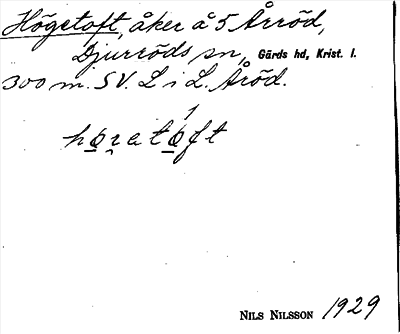 Högetoft, åker å 5 Årröd,
Djurröds sn, Gärds hd, Krist. l.
300 m. SV. L i L. Åröd.
NILS NILSSON 1929